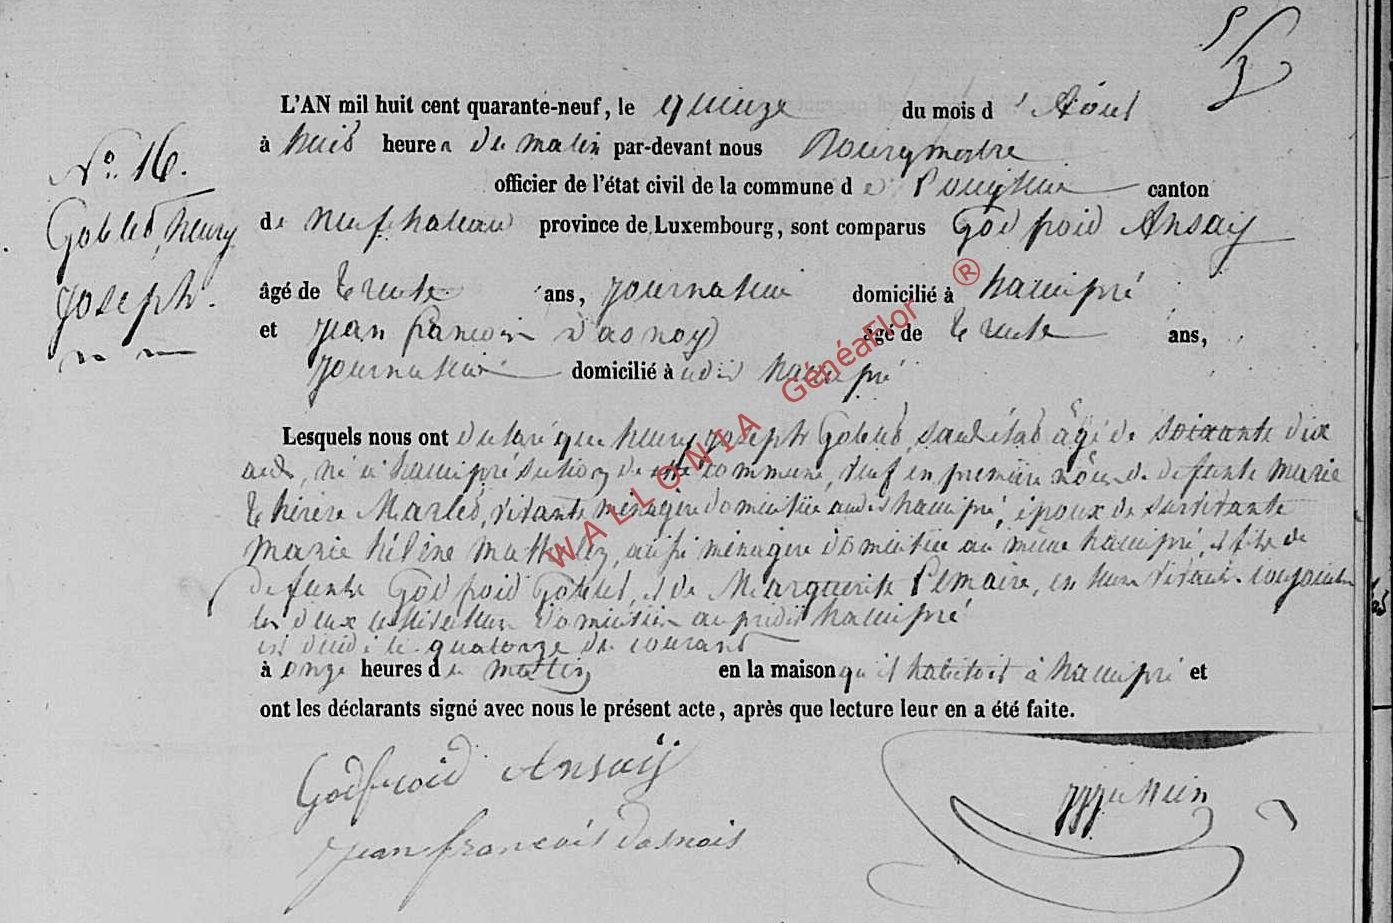 L'AN mil huit cent quarante-neuf, le quinze du mois d'Aout
à huit heures du matin par-devant nous Bourgmestre
officier de l'état civil de la commune de canton
de neufchateau province de Luxembourg, sont comparus Godfroid Ansay
âgé de trente ans, Journalier domicilié à hamipré
et jean francois Dasnoy âgé de trente ans,
journalier domicilié à udit hamipré
N° 16.
Goblet, henry
Joseph.
Lesquels nous ont déclaré que henry joseph Goblet, âgé de soixante dix
ans, né à hamipré section de cette commune, veuf en première nôce de defunte Marie
thérèse vivante ménagère domiciliée audit hamipré, époux de survivante
marie hélène ménagère domiciliée au même hamipré, et fils de
defunts Godfroid Goblet, et de Marguerite Lemaire, en leur vivant conjoints
les deux domiciliés au predit hamipré
est décédé le quatorze du courant
à onze heures du matin en la maison qu'il habitoit à hamipré et
ont les déclarants signé avec nous le présent acte, après que lecture leur en a été faite.
Godfroid Ansay
Jean francois dasnois
WALLONIA GénéaFlor ®